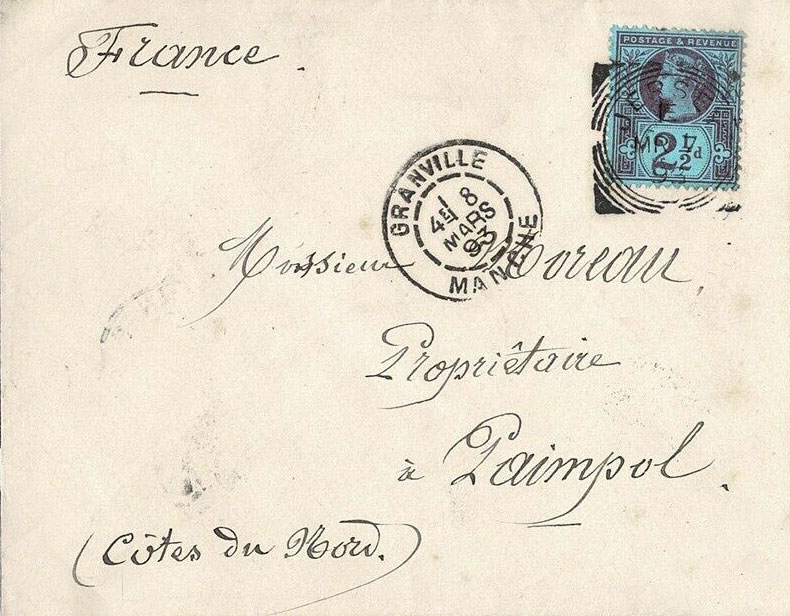 France
POSTAGE & REVENUE
JERSEY
E
MR 7
2½d
GRANVILLE
4E 8
MARS
93
MANCHE
Monsieur Moreau,
Propriêtaire
à Paimpol.
(Côtes du Nord.)